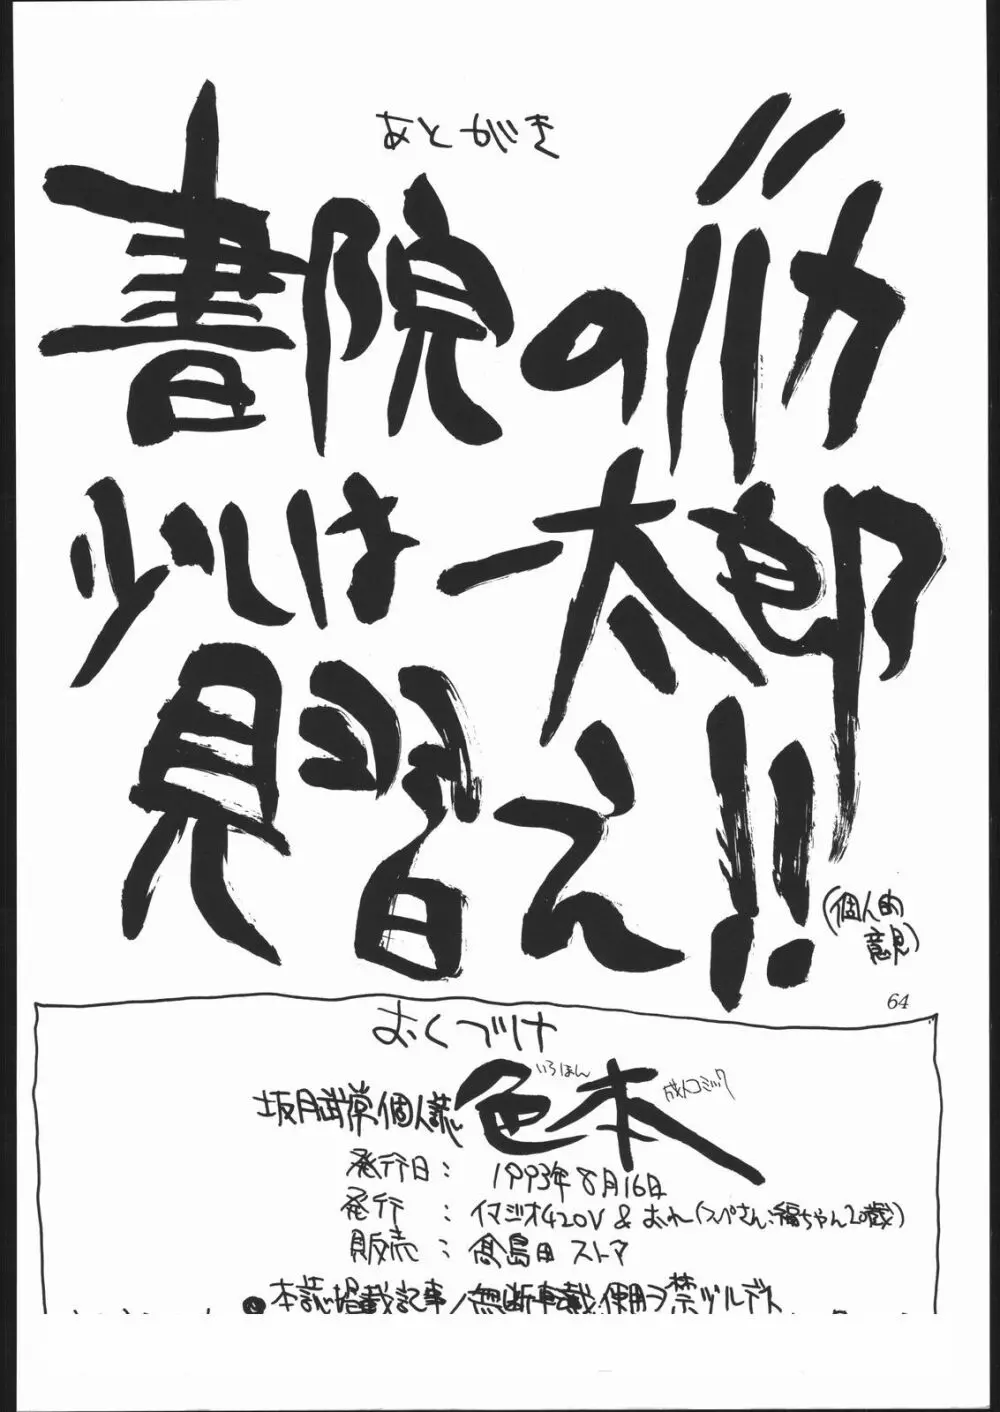 あとがき
書院のバカ
少しは一太郎
見習え!!
(個人的
意見)
64
おくづけ
いろほん
坂月武常個人誌 色本 成人コミック
発行日: 1993年8月16日
発行 : イマジオ420V & おれ(スペさん、福ちゃん20歳)
販売 : 髙島田 ストア
●本誌掲載記事ノ無断転載、使用ヲ禁ヅルデス